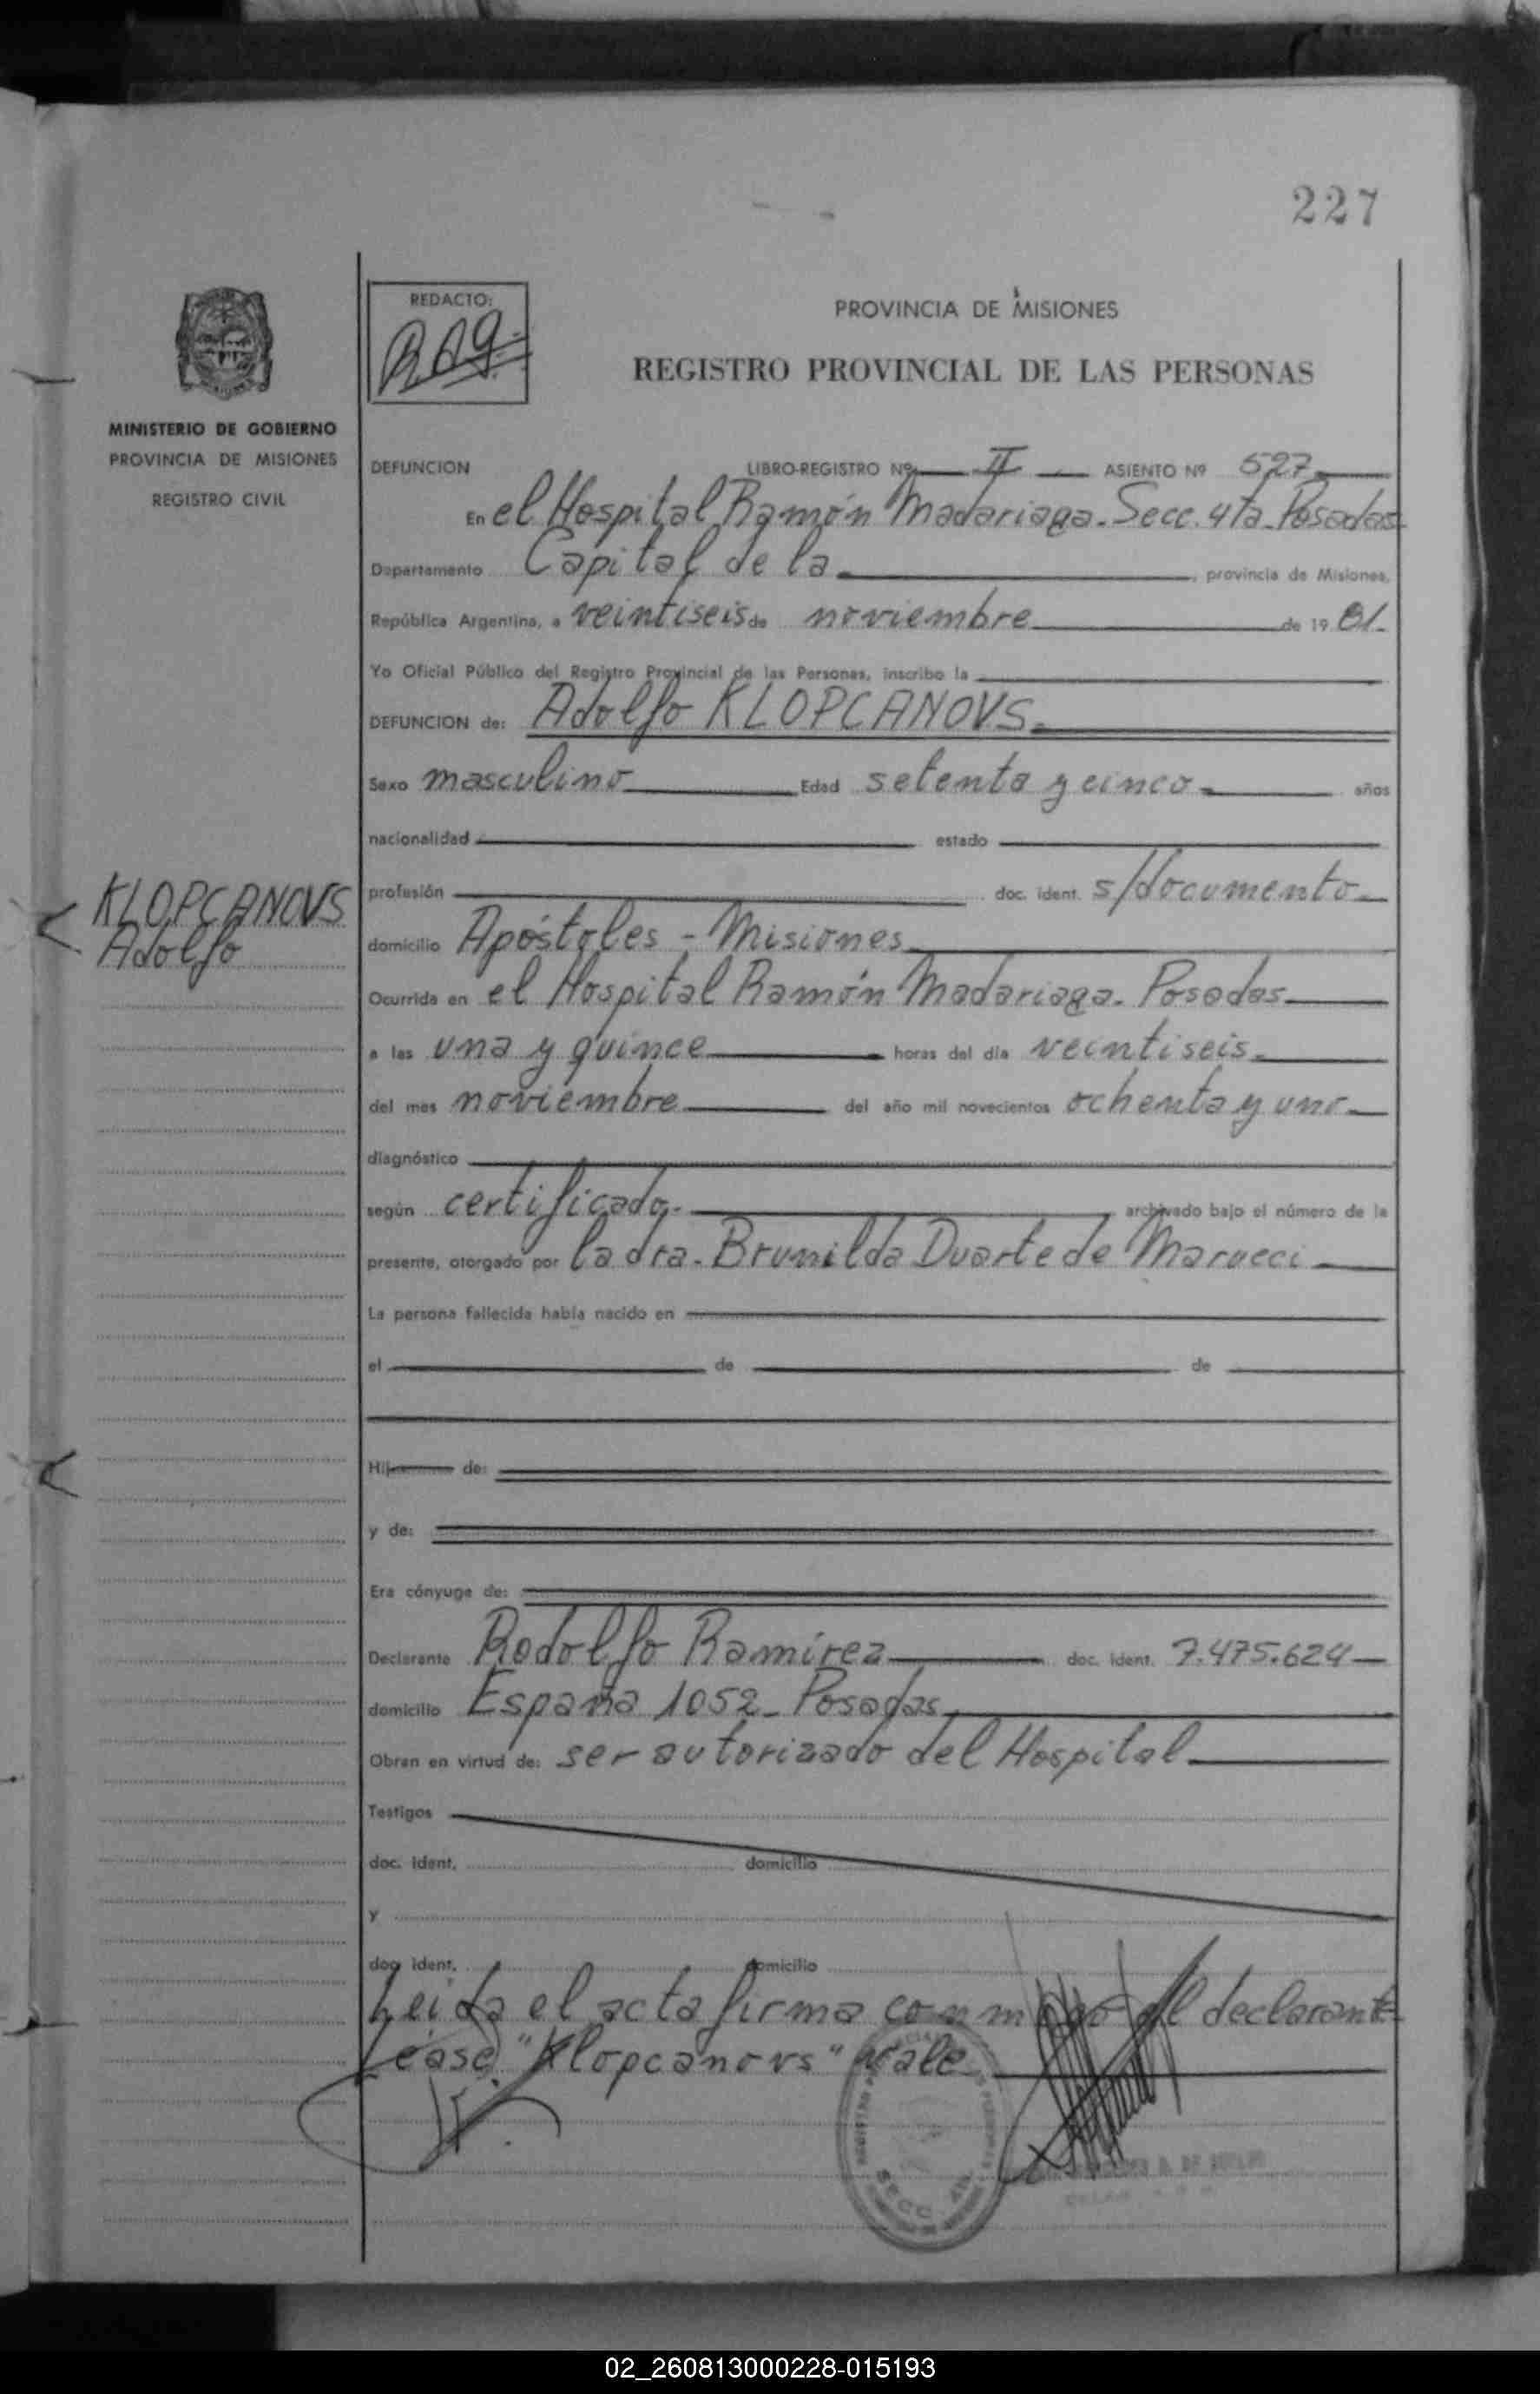 227
REDACTO:
PROVINCIA DE MISIONES
REGISTRO PROVINCIAL DE LAS PERSONAS
MINISTERIO DE GOBIERNO
PROVINCIA DE MISIONES
REGISTRO CIVIL
DEFUNCION LIBRO-REGISTRO Nº II ASIENTO Nº 527
En el Hospital Ramón Madariaga. Secc. 4ta. Posadas
Departamento Capital de la provincia de Misiones,
República Argentina, a veintiseis de noviembre de 19 81.
Yo Oficial Público del Registro Provincial de las Personas, inscribo la
DEFUNCION de: Adolfo KLOPCANOVS.
Sexo masculino Edad setenta y cinco años
nacionalidad estado
KLOPCANOVS
Adolfo
profesión doc. ident. s/documento
domicilio Apóstoles - Misiones
Ocurrida en el Hospital Ramón Madariaga. Posadas
a las una y quince horas del día veintiseis.
del mes noviembre del año mil novecientos ochenta y uno
diagnóstico
según certificado. archivado bajo el número de la
presente, otorgado por la dra. Brunilda Duarte de Marucci
La persona fallecida había nacido en
el de de
Hij de:
y de:
Era cónyuge de:
Declarante Rodolfo Ramírez doc. ident. 7.475.624
domicilio España 1052 - Posadas
Obran en virtud de: ser autorizado del Hospital
Testigos
doc. ident. domicilio
y
doc. ident. domicilio
Leída el acta firma conmigo el declarante
Léase "Klopcanovs" vale
SECC. 4ta
02_260813000228-015193